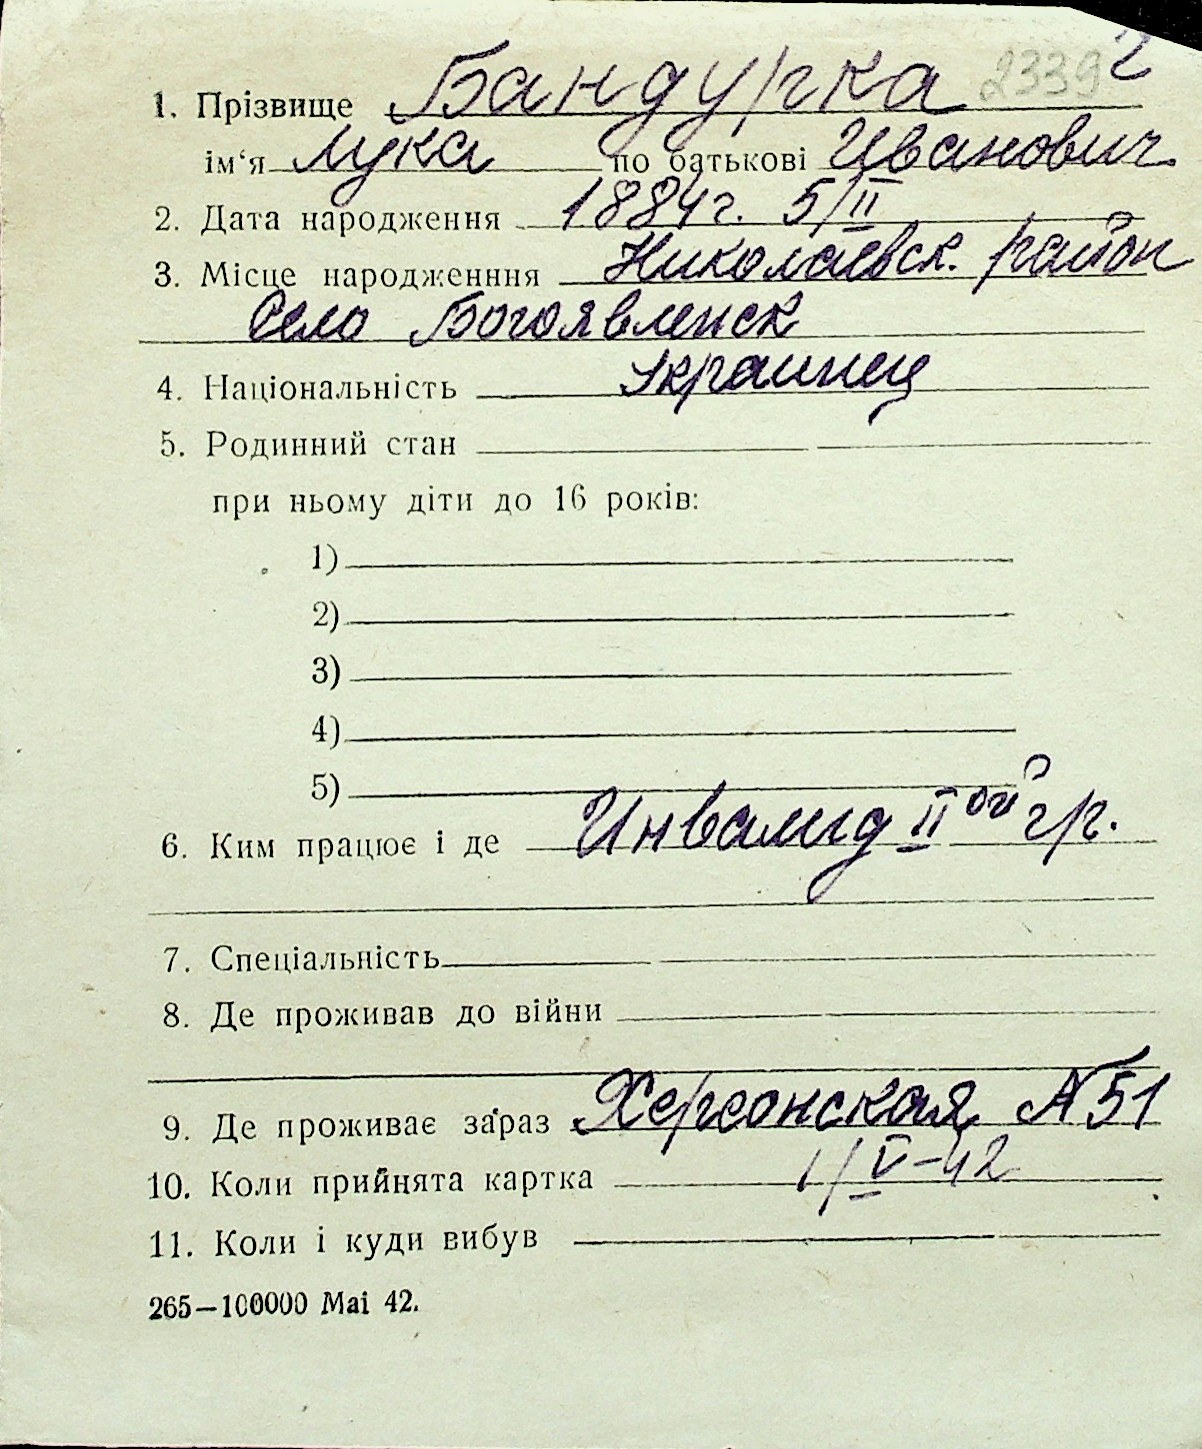 1. Прізвище Бандурка 2339 2
ім‘я Лука по батькові Иванович
2. Дата народження 1884г. 5/II
3. Місце народженння Николаевск. район
Село Богоявленск
4. Національність Украинец
5. Родинний стан
при ньому діти до 16 років:
1)
2)
3)
4)
5)
6. Ким працює і де Инвалид II ой гр.
7. Спеціальність
8. Де проживав до війни
9. Де проживає зараз Херсонская №51
10. Коли прийнята картка 1/V-42
11. Коли і куди вибув
265—100000 Mai 42.